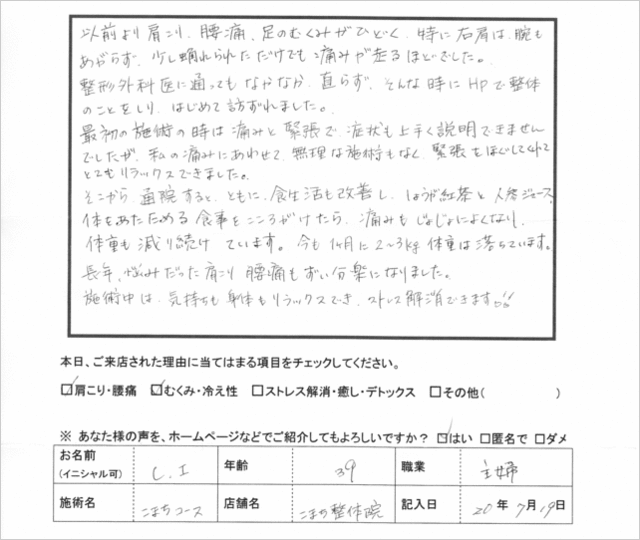 以前より肩こり、腰痛、足のむくみがひどく、特に右肩は、腕も
あがらず、少し触れられただけでも痛みが走るほどでした。
整形外科医に通ってもなかなか、直らず、そんな時にHPで整体
のことをしり、はじめて訪ずれました。
最初の施術の時は痛みと緊張で、症状も上手く説明できません
でしたが、私の痛みにあわせて、無理な施術もなく、緊張をほぐしてくれて
とてもリラックスできました。
そこから、通院すると、ともに、食生活も改善し、しょうが紅茶と人参ジュース、
体をあたためる食事をこころがけたら、痛みもじょじょによくなり、
体重も減り続けています。今も1ヶ月に2~3kg体重は落ちています。
長年、悩みだった肩こり腰痛もずい分楽になりました。
施術中は、気持ちも身体もリラックスでき、ストレス解消できます!!
本日、ご来店された理由に当てはまる項目をチェックしてください。
☑肩こり・腰痛 ☑むくみ・冷え性 □ストレス解消・癒し・デトックス □その他( )
※ あなた様の声を、ホームページなどでご紹介してもよろしいですか? ☑はい □匿名で □ダメ
お名前 (イニシャル可) C.I 年齢 39 職業 主婦
施術名 こまちコース 店舗名 こまち整体院 記入日 20年 7月19日